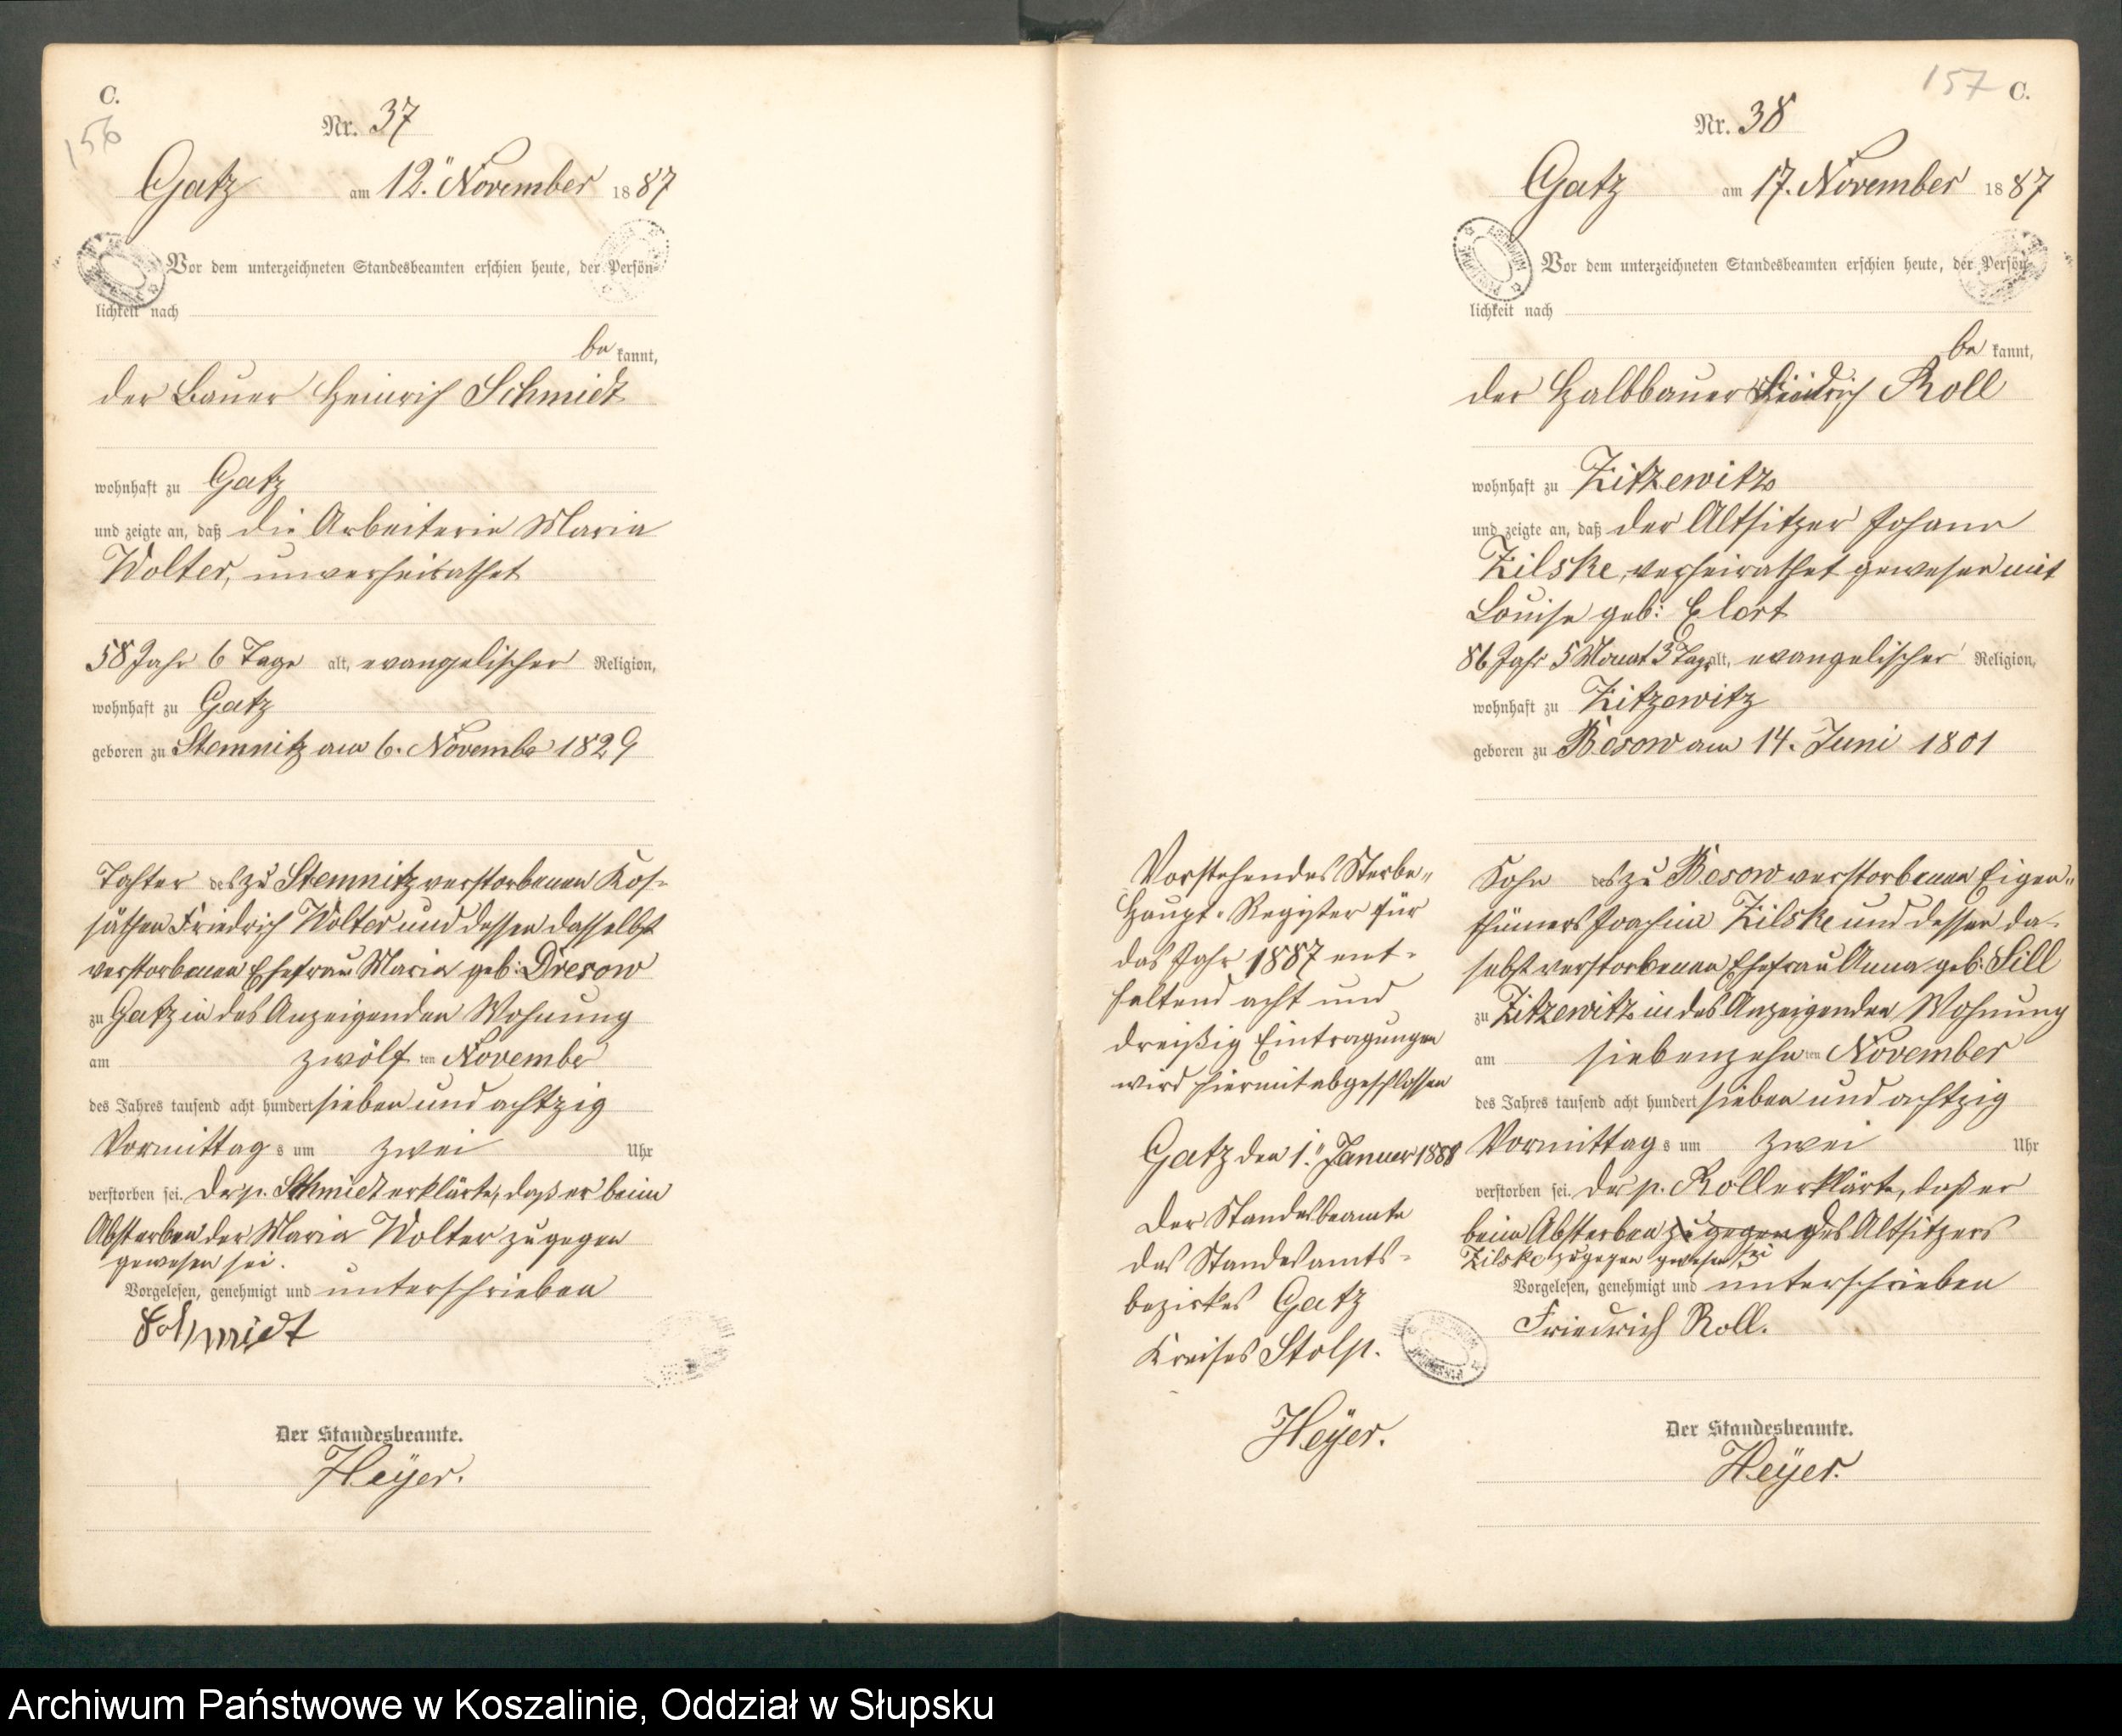 C.
156
Nr. 37
Gatz am 12. November 1887
Vor dem unterzeichneten Standesbeamten erschien heute, der Persön-
lichkeit nach
be kannt,
der Bauer Heinrich Schmidt
wohnhaft zu Gatz
und zeigte an, daß die Arbeiterin Maria
Wolter, unverheirathet
58 Jahr 6 Tage alt, evangelischer Religion,
wohnhaft zu Gatz
geboren zu Stemnitz am 6. November 1829
Tochter des zu Stemnitz verstorbenen Kos-
säthen Friedrich Wolter und dessen dasselbst
verstorbenen Ehefrau Maria geb: Dresow
zu Gatz in des Anzeigenden Wohnung
am zwölf ten November
des Jahres tausend acht hundert sieben und achtzig
Vormittag s um zwei Uhr
verstorben sei. Der p. Schmidt erklärte, daß er beim
Absterben der Maria Wolter zugegen
gewesen sei.
Vorgelesen, genehmigt und unterschrieben
Schmidt
Der Standesbeamte.
Heÿer.
157 C.
Nr. 38
Gatz am 17. November 1887
Vor dem unterzeichneten Standesbeamten erschien heute, der Persön-
lichkeit nach
be kannt,
der Halbbauer Friedrich Roll
wohnhaft zu Zitzewitz
und zeigte an, daß der Altsitzer Johann
Zilske, verheirathet gewesen mit
Louise geb: Elert
86 Jahr 5 Monat 3 Tage alt, evangelischer Religion,
wohnhaft zu Zitzewitz
geboren zu Besow am 14. Juni 1801
Sohn des zu Besow verstorbenen Eigen-
thümers Joachim Zilske und dessen da-
selbst verstorbenen Ehefrau Anna geb: Sill
zu Zitzewitz in des Anzeigenden Wohnung
am siebenzehn ten November
des Jahres tausend acht hundert sieben und achtzig
Vormittag s um zwei Uhr
verstorben sei. Der p. Roll erklärte, daß er
beim Absterben zugegen des Altsitzers
Zilske zugegen gewesen sei
Vorgelesen, genehmigt und unterschrieben
Friedrich Roll.
Der Standesbeamte.
Heÿer.
Vorstehendes Sterbe-
Haupt-Register für
das Jahr 1887 ent-
haltend acht und
dreißig Eintragungen
wird hiermit abgeschlossen
Gatz den 1. Januar 1888
Der Standesbeamte
des Standesamts-
bezirkes Gatz
Kreises Stolp.
Heÿer.
Archiwum Państwowe w Koszalinie, Oddział w Słupsku